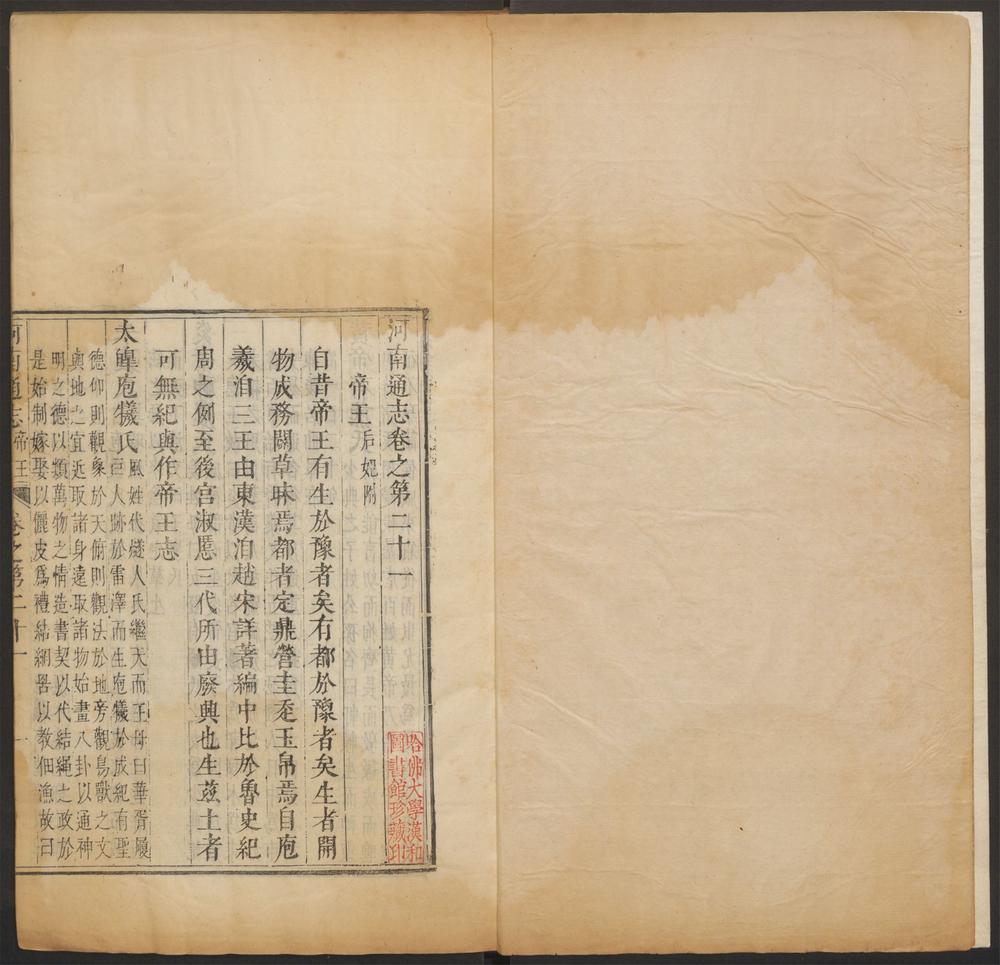 河南通志卷之第二十一
帝王后妃附
自昔帝王有生於豫者矣有都於豫者矣生者開
物成務闢草昧焉都者定鼎營圭奠玉帛焉自庖
羲洎三王由東漢洎趙宋詳著編中比於魯史紀
周之例至後宮淑慝三代所由廢興也生茲土者
可無紀與作帝王志
太皡庖犧氏風姓代燧人氏繼天而王母曰華胥履
巨人跡於雷澤而生庖犧於成紀有聖
德仰則觀象於天俯則觀法於地旁觀鳥獸之文
與地之宜近取諸身遠取諸物始畫八卦以通神
明之德以類萬物之情造書契以代結繩之政於
是始制嫁娶以儷皮為禮結網罟以教佃漁故曰
河南通志 帝王 卷之第二十一 一
哈佛大學漢和
圖書館珍藏印